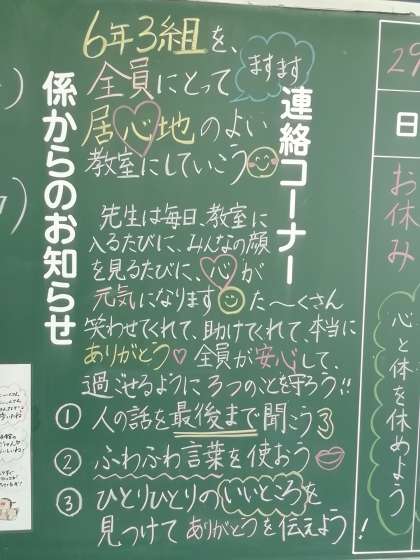 6年3組を、
ますます
全員にとって
居心地のよい
教室にしていこう
連絡コーナー
係からのお知らせ
先生は毎日、教室に
入るたびに、みんなの顔
を見るたびに、心が
元気になります た〜くさん
笑わせてくれて、助けてくれて、本当に
ありがとう♡ 全員が安心して、
過ごせるように3つのことを守ろう!!
① 人の話を最後まで聞こう
② ふわふわ言葉を使おう
③ ひとりひとりのいいところを
見つけてありがとうを伝えよう!
29
日
お休み
心と体を休めよう